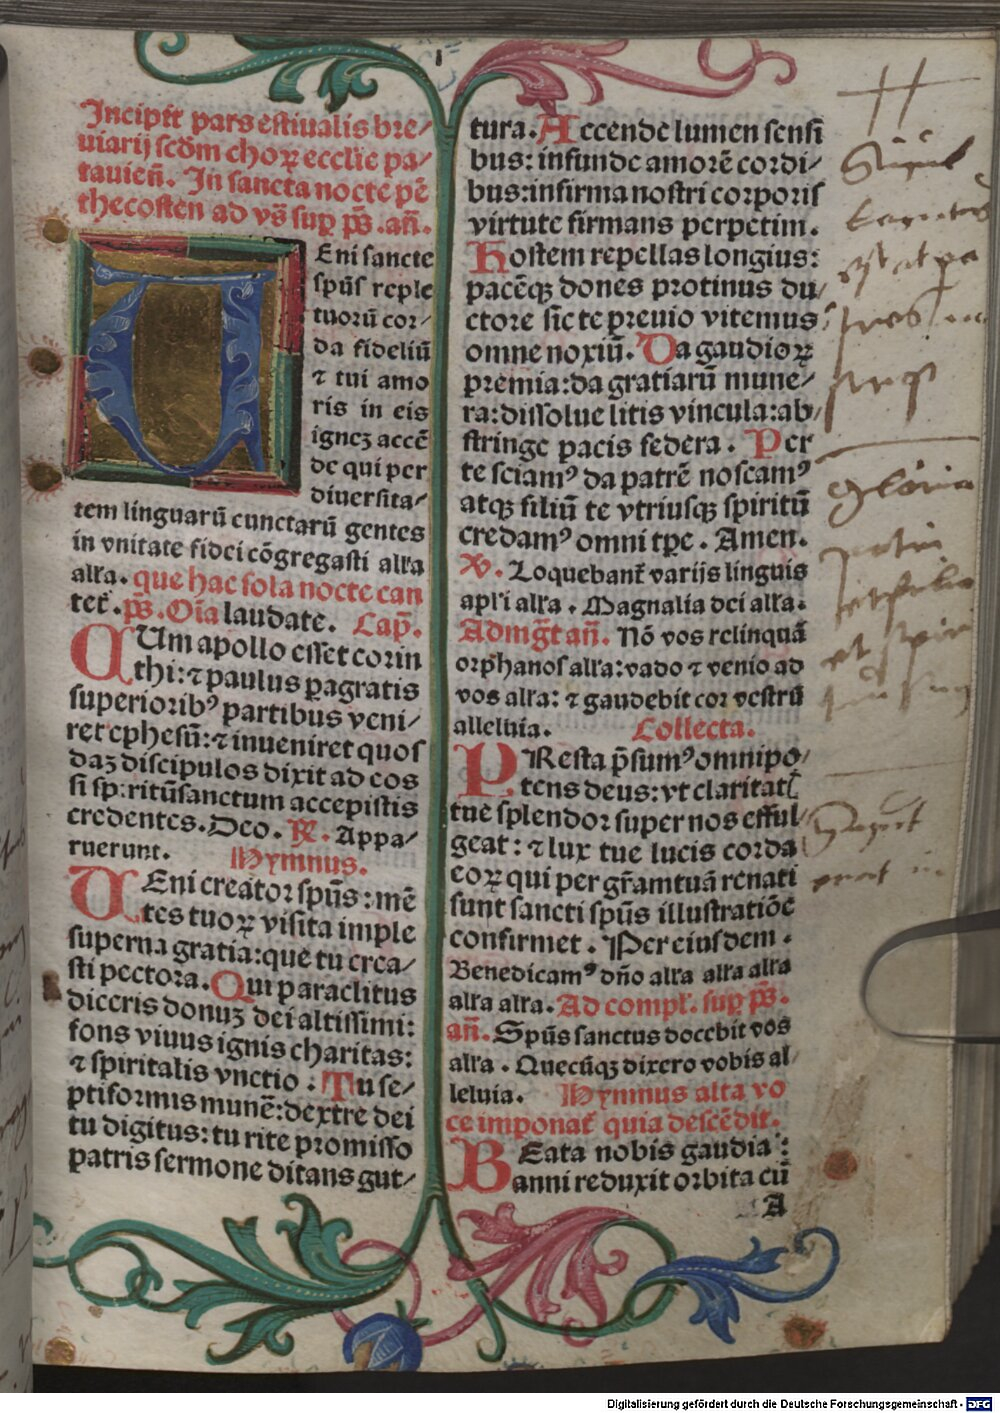 Incipit pars estiualis bre/
uiarij scdm choꝝ ecclie pa/
tauieñ. In sancta nocte pē
thecosten ad vs̄ sup ps̄ .añ.
VEni sancte
spūs reple
tuorū cor/
da fideliū
⁊ tui amo
ris in eis
ignez accē
de qui per
diuersita/
tem linguarū cunctarū gentes
in vnitate fidei cōgregasti alła
alła. que hac sola nocte can
tet̃. ps̄. Oīa laudate. Cap̄.
CUm apollo esset corin
thi: ⁊ paulus ꝑagratis
superioribꝰ partibus veni/
ret ephesū: ⁊ inueniret quos
daz discipulos dixit ad eos
si spiritūsanctum accepistis
credentes. Deo. ℟. Appa/
ruerunt. Hymnus.
VEni creator spūs: mē
tes tuoꝝ visita imple
superna gratia: que tu crea/
sti pectora. Qui paraclitus
diceris donuz dei altissimi:
fons viuus ignis charitas:
⁊ spiritalis vnctio. Tu se/
ptiformis munē: dextre dei
tu digitus: tu rite promisso
patris sermone ditans gut/
tura. Accende lumen sensi
bus: infunde amorē cordi/
bus: infirma nostri corporis
virtute firmans perpetim.
Hostem repellas longius:
pacēqꝫ dones protinus du/
ctore sic te preuio vitemus
omne noxiū. Da gaudioꝝ
premia: da gratiarū mune/
ra: dissolue litis vincula: ab/
stringe pacis federa. Per
te sciamꝰ da patrē noscamꝰ
atqꝫ filiū te vtriusqꝫ spiritū
credamꝰ omni tꝑe. Amen.
℣. Loquebant̃ varijs linguis
apłi alła. Magnalia dei alła.
Ad mḡt añ. Nō vos relinquā
orphanos alła: vado ⁊ venio ad
vos alła: ⁊ gaudebit cor vestrū
alleluia. Collecta.
PResta p̄sumꝰ omnipo/
tens deus: vt claritat̃
tue splendor super nos efful/
geat: ⁊ lux tue lucis corda
eoꝝ qui per gr̄am tuā renati
sunt sancti spūs illustratiōe
confirmet. Per eiusdem.
Benedicamꝰ dño alła alła alła
alła alła. Ad compl̃. sup ps̄.
añ. Spūs sanctus docebit vos
alła. Quecūqꝫ dixero vobis al/
leluia. Hymnus alta vo
ce imponat̃ quia descēdit.
BEata nobis gaudia:
anni reduxit orbita cū
A
gloria
patri
et filio
et spiri
Digitalisierung gefördert durch die Deutsche Forschungsgemeinschaft - DFG